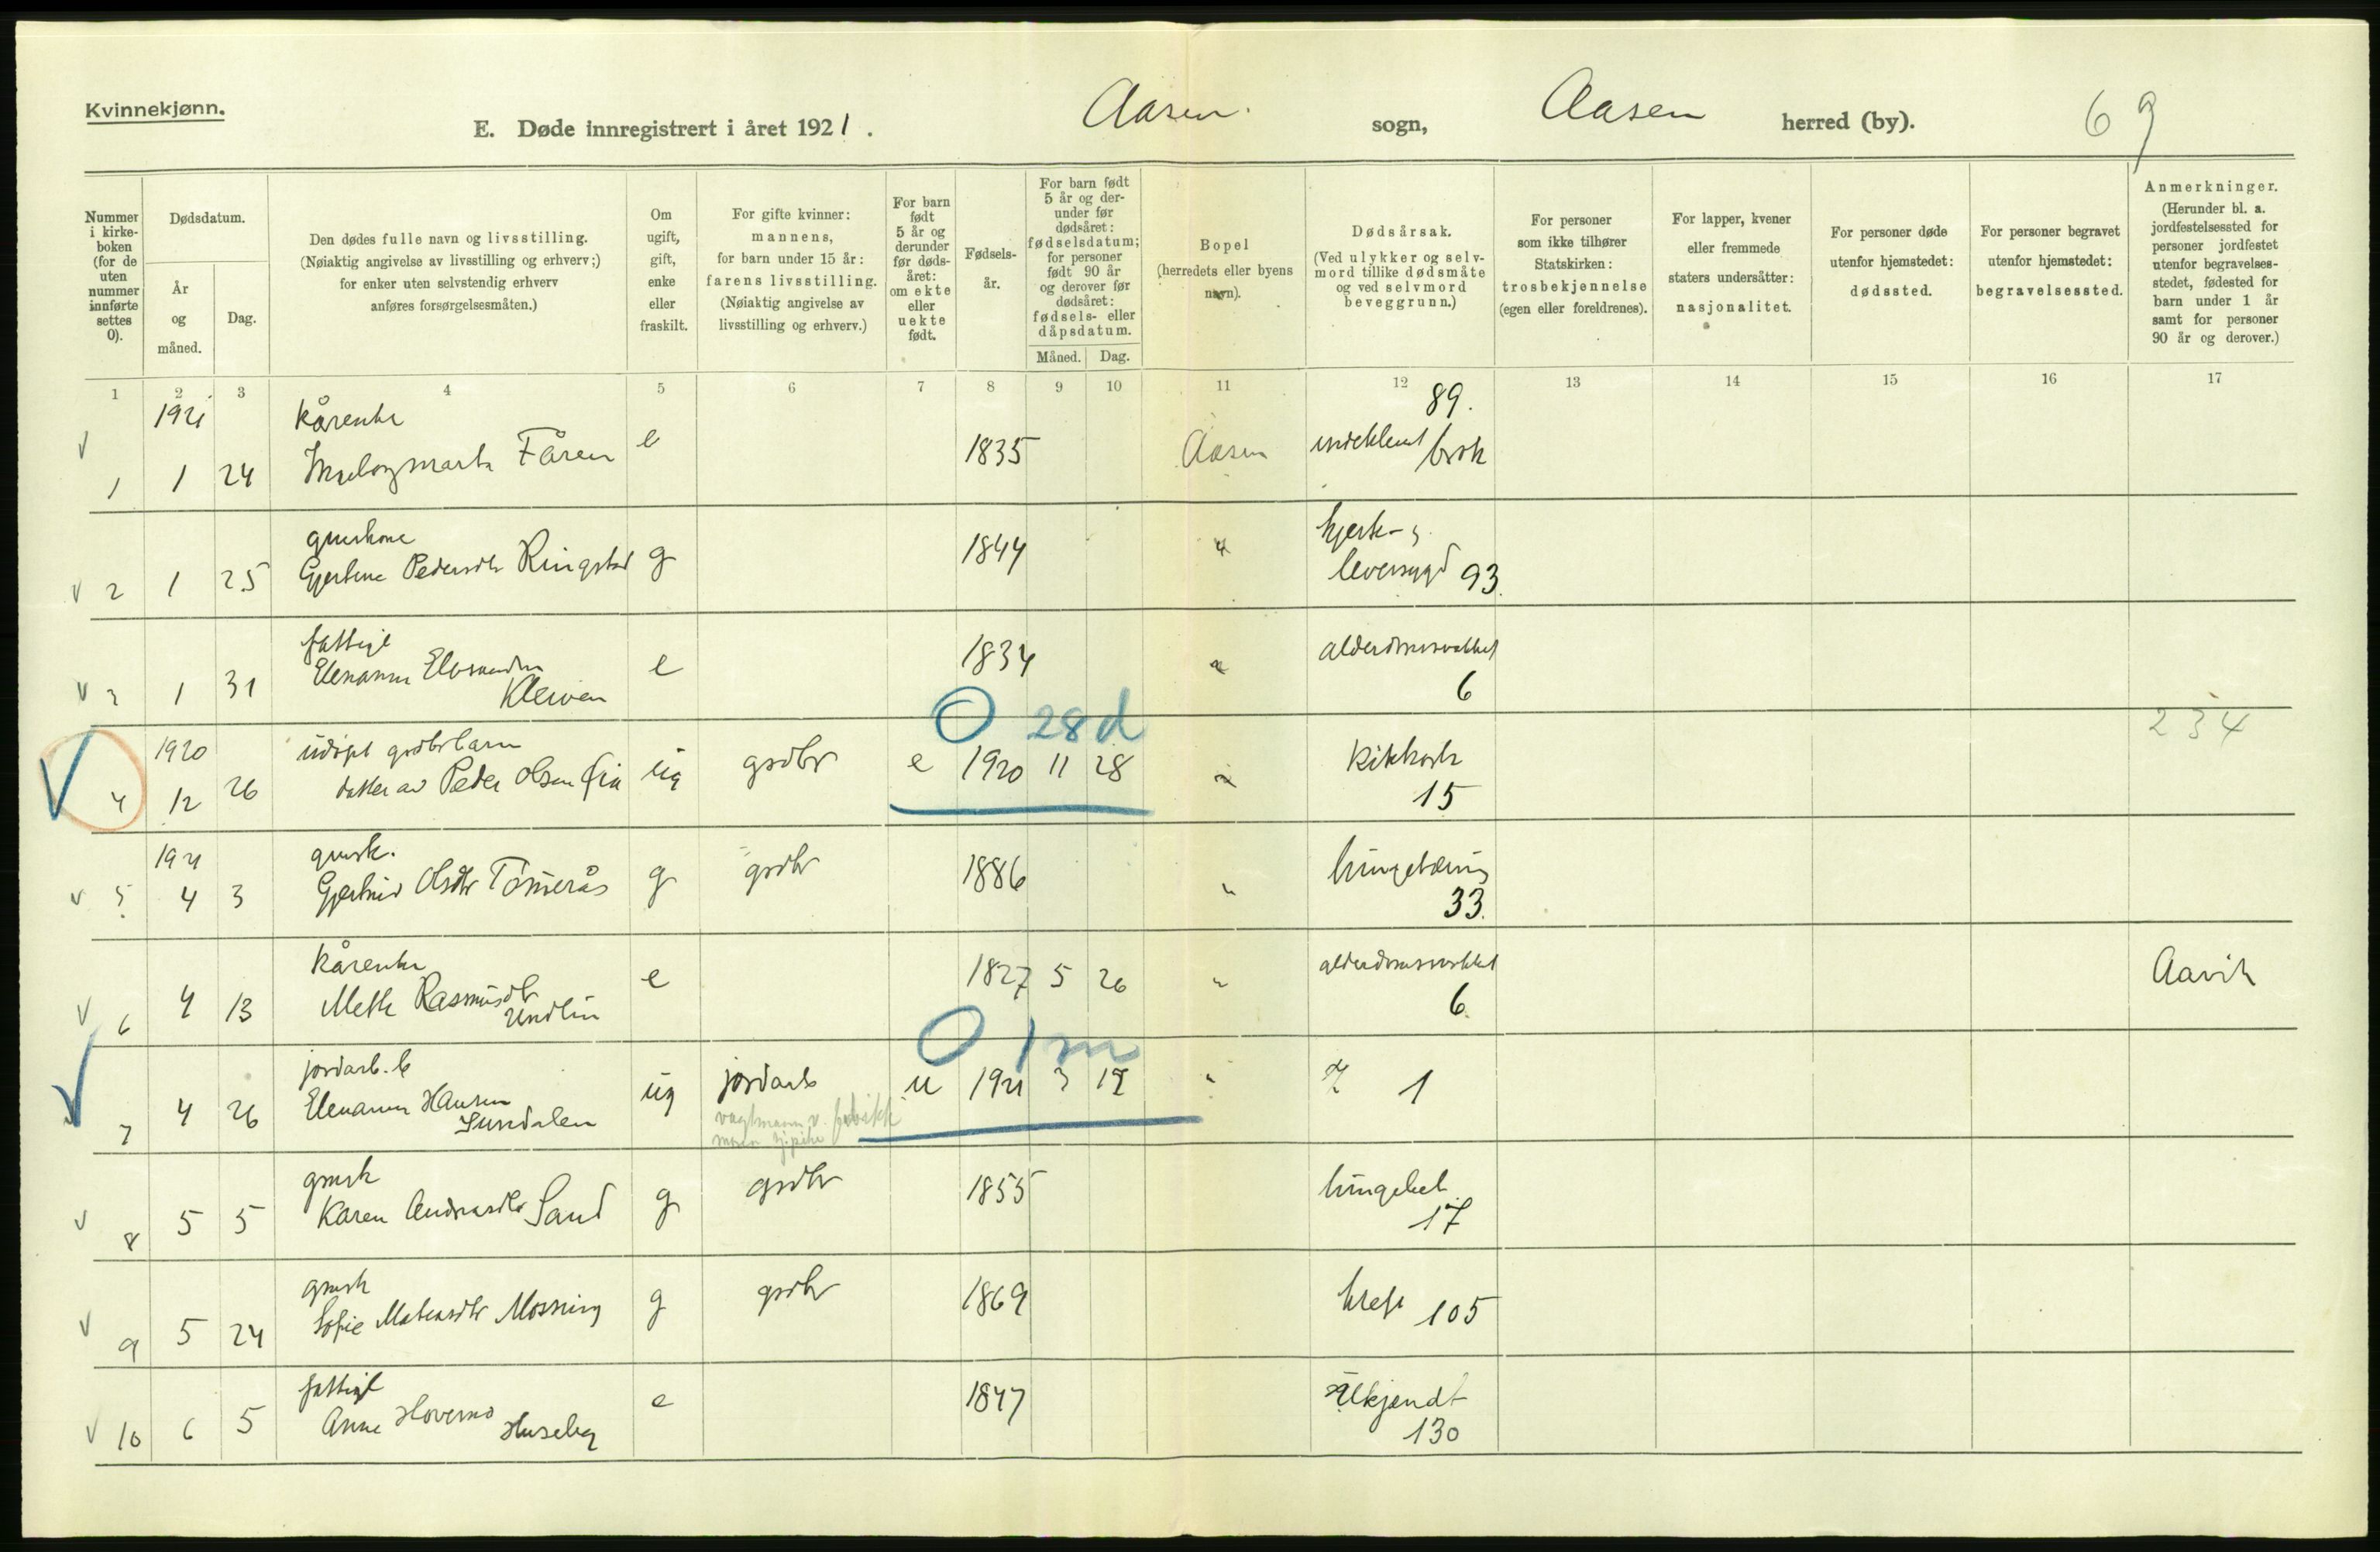 Kvinnekjønn.
E. Døde innregistrert i året 1921. Aasen sogn, Aasen herred (by). 69
Nummer i kirkeboken (for de uten nummer innførte settes 0).
Dødsdatum.
År og måned.
Dag.
Den dødes fulle navn og livsstilling.
(Nøiaktig angivelse av livsstilling og erhverv;)
for enker uten selvstendig erhverv
anføres forsørgelsesmåten.)
Om ugift, gift, enke eller fraskilt.
For gifte kvinner: mannens,
for barn under 15 år: farens livsstilling.
(Nøiaktig angivelse av livsstilling og erhverv.)
For barn født 5 år og derunder før dødsåret: om ekte eller uekte født.
Fødselsår.
For barn født 5 år og derunder før dødsåret: fødselsdatum; for personer født 90 år og derover før dødsåret: fødsels- eller dåpsdatum.
Måned. Dag.
Bopel (herredets eller byens navn).
Dødsårsak.
(Ved ulykker og selvmord tillike dødsmåte og ved selvmord beveggrunn.)
For personer som ikke tilhører Statskirken: trosbekjennelse (egen eller foreldrenes).
For lapper, kvener eller fremmede staters undersåtter: nasjonalitet.
For personer døde utenfor hjemstedet: dødssted.
For personer begravet utenfor hjemstedet: begravelsessted.
Anmerkninger.
(Herunder bl. a. jordfestelsessted for personer jordfestet utenfor begravelsesstedet, fødested for barn under 1 år samt for personer 90 år og derover.)
1 2 3 4 5 6 7 8 9 10 11 12 13 14 15 16 17
1921 kårenke 89.
1 1 24 Fåren e 1835 Aasen indeklemt brok
2 1 25 Pedersdtr Ringstad g 1844 " hjerte- leversygd 93
fattigl
3 1 31 Kleiven e 1834 " alderdomssvakhet 6
0 28d 234
1920 udøpt grdbr barn
4 12 26 datter av Peder Olsen ug grdbr e 1920 11 28 " Kikhoste 15
1921
5 4 3 Gjertrud Olsdtr Tömerås g grdbr 1886 " lungetæring 33
kårenke
6 4 13 Mette Rasmusdtr e 1827 5 26 " alderdomssvakhet 6 Aavik
0 1m
jordarb. b
7 4 26 Hansen Sundalen ug jordarb u 1921 3 " 1
8 5 5 Karen Andreasdtr Sand g grdbr 1855 17
9 5 24 Sofie Mossing g grdbr 1869 kreft 105
fattigl
10 6 5 Anne Huseby e 1847 Ukjendt 130